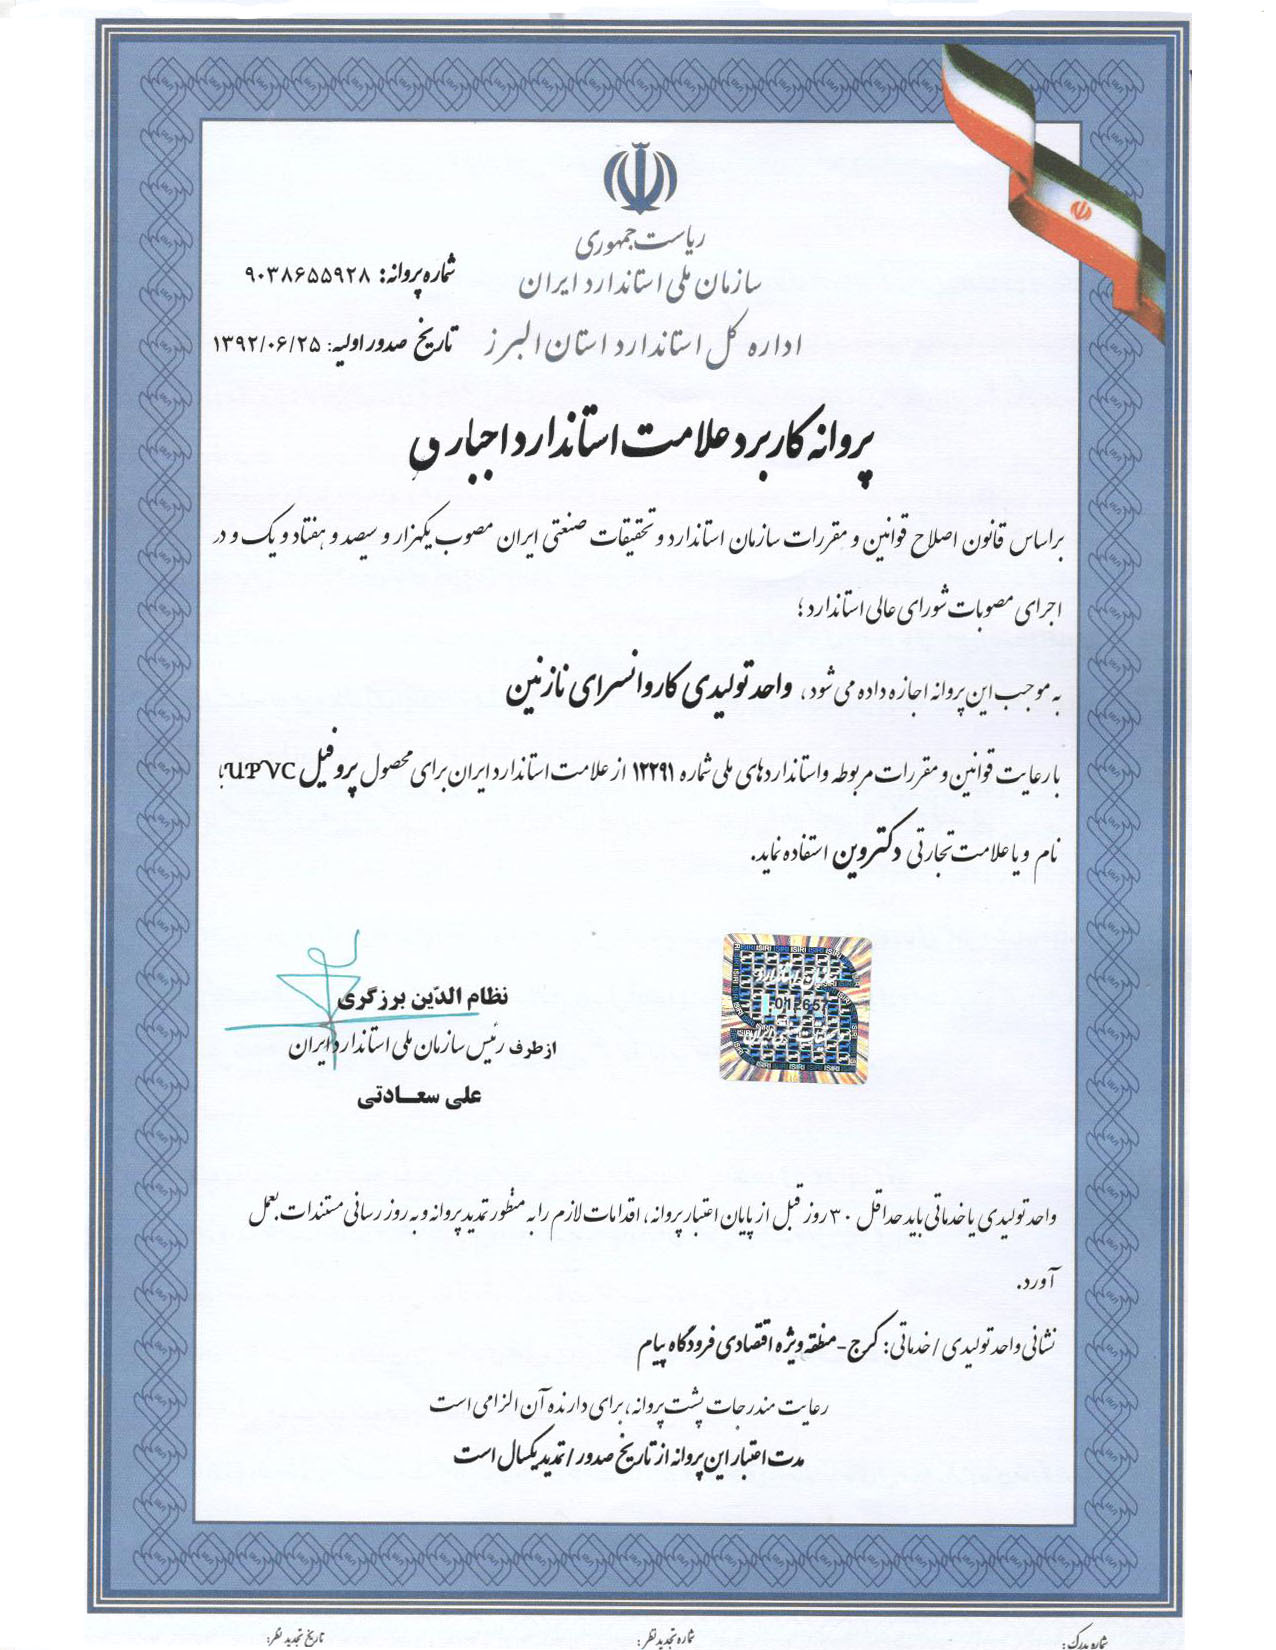 ریاست جمهوری
سازمان ملی استاندارد ایران
شماره پروانه: ۹۰۳۸۶۵۵۹۲۸
اداره کل استاندارد استان البرز
تاریخ صدور اولیه: ۱۳۹۲/۰۶/۲۵
پروانه کاربرد علامت استاندارد اجباری
براساس قانون اصلاح قوانین و مقررات سازمان استاندارد و تحقیقات صنعتی ایران مصوب یکهزار و سیصد و هفتاد و یک و در
اجرای مصوبات شورای عالی استاندارد ؛
به موجب این پروانه اجازه داده می شود، واحد تولیدی کاروانسرای نازنین
با رعایت قوانین و مقررات مربوطه و استانداردهای ملی شماره ۱۲۲۹۱ از علامت استاندارد ایران برای محصول پروفیل UPVC با
نام و یا علامت تجارتی دکتروین استفاده نماید.
012657
نظام الدّین برزگری
از طرف رئیس سازمان ملی استاندارد ایران
علی سعـادتی
واحد تولیدی یا خدماتی باید حداقل ۳۰ روز قبل از پایان اعتبار پروانه، اقدامات لازم را به منظور تمدید پروانه و به روز رسانی مستندات بعمل
آورد.
نشانی واحد تولیدی / خدماتی: کرج - منطقه ویژه اقتصادی فرودگاه پیام
رعایت مندرجات پشت پروانه، برای دارنده آن الزامی است
مدت اعتبار این پروانه از تاریخ صدور / تمدید یکسال است
شماره مدرک:
شماره تجدید نظر:
تاریخ تجدید نظر: